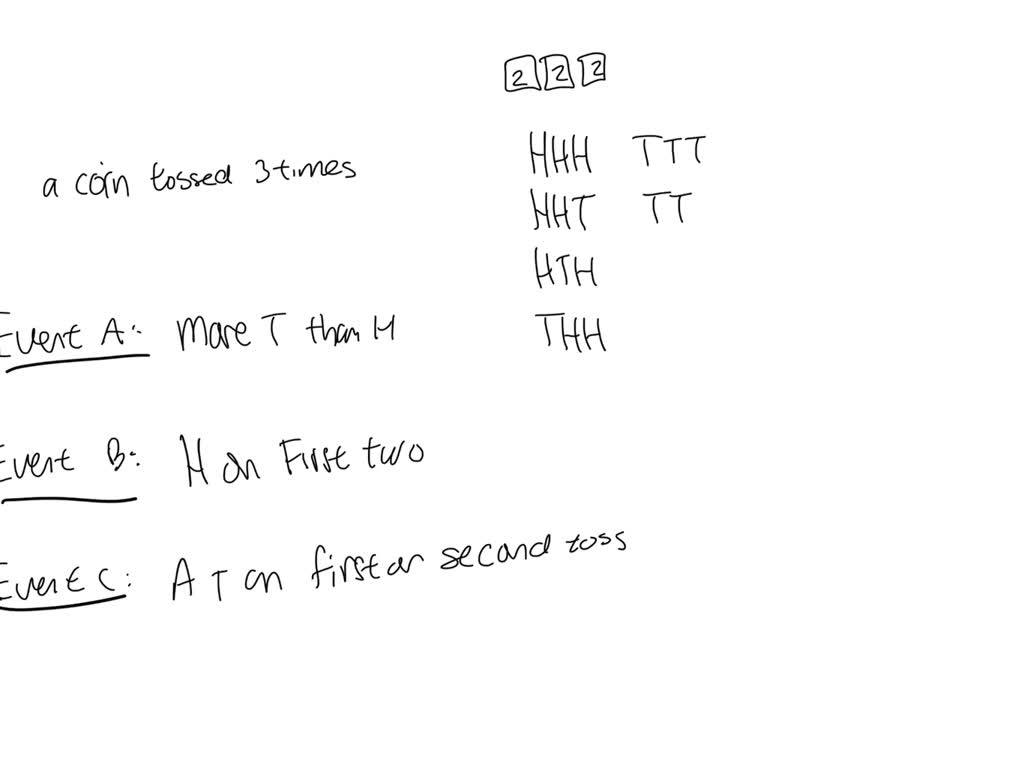 2 2 2
HHH TTT
a coin tossed 3 times
HHT TT
HTH
Event A: More T than H
THH
Event B: H on First two
Event C: A T on first or second toss